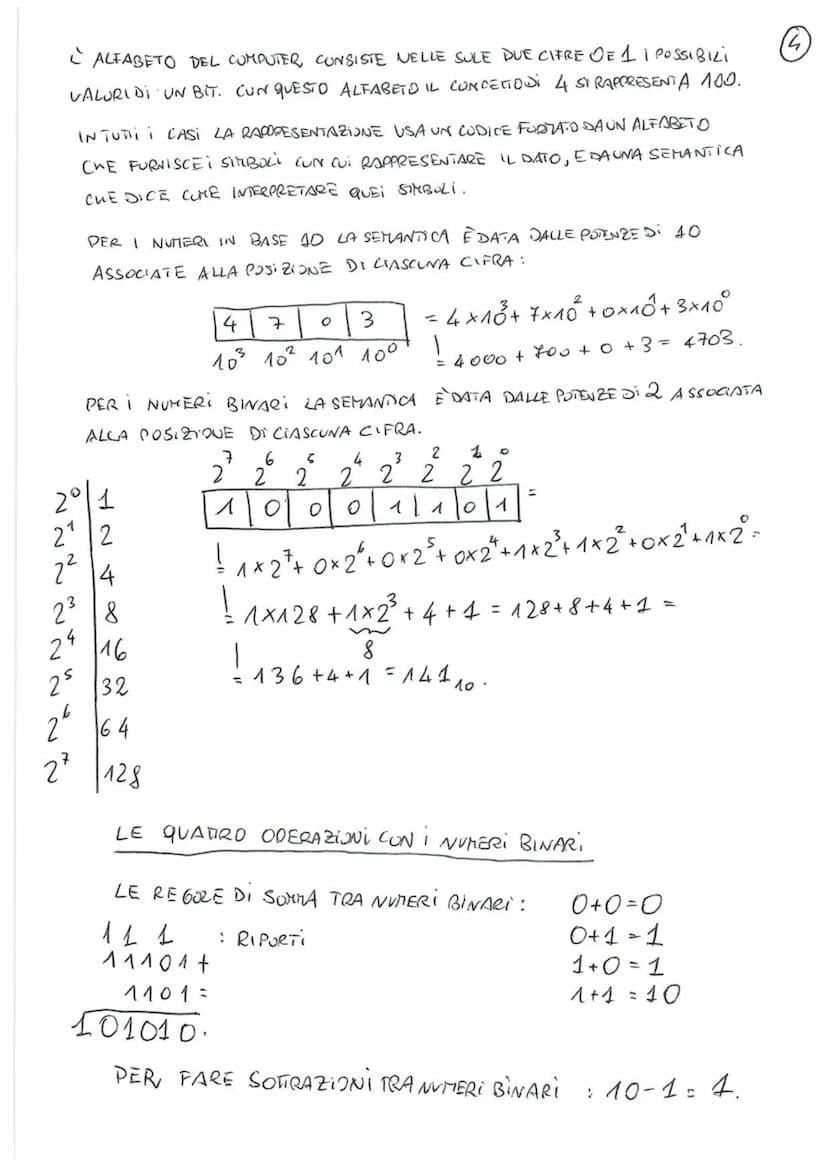 4
L'ALFABETO DEL COMPUTER CONSISTE NELLE SOLE DUE CIFRE 0 E 1 I POSSIBILI
VALORI DI UN BIT. CON QUESTO ALFABETO IL CONCETTO DI 4 SI RAPPRESENTA 100.
IN TUTTI I CASI LA RAPPRESENTAZIONE USA UN CODICE FORMATO DA UN ALFABETO
CHE FORNISCE I SIMBOLI CON CUI RAPPRESENTARE IL DATO, E DA UNA SEMANTICA
CHE DICE COME INTERPRETARE QUEI SIMBOLI.
PER I NUMERI IN BASE 10 LA SEMANTICA È DATA DALLE POTENZE DI 10
ASSOCIATE ALLA POSIZIONE DI CIASCUNA CIFRA:
4 7 0 3 = 4×10³+ 7×10² + 0×10¹ + 3×10⁰
10³ 10² 10¹ 10⁰ = 4000 + 700 + 0 + 3 = 4703.
PER I NUMERI BINARI LA SEMANTICA È DATA DALLE POTENZE DI 2 ASSOCIATA
ALLA POSIZIONE DI CIASCUNA CIFRA.
2⁷ 2⁶ 2⁵ 2⁴ 2³ 2² 2¹ 2⁰
1 0 0 0 1 1 0 1 =
= 1×2⁷+ 0×2⁶+ 0×2⁵+ 0×2⁴+1×2³+ 1×2²+0×2¹+1×2⁰=
= 1×128 + 1×2³ + 4 + 1 = 128+8+4+1 =
8
= 136+4+1 = 141₁₀.
2⁰ 1
2¹ 2
2² 4
2³ 8
2⁴ 16
2⁵ 32
2⁶ 64
2⁷ 128
LE QUATTRO OPERAZIONI CON I NUMERI BINARI
LE REGOLE DI SOMMA TRA NUMERI BINARI: 0+0=0
1 1 1 : RIPORTI 0+1=1
11101+ 1+0=1
1101= 1+1=10
101010.
PER FARE SOTTRAZIONI TRA NUMERI BINARI : 10-1= 1.